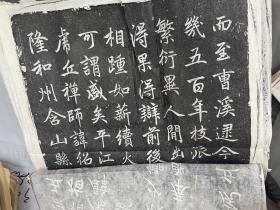 而至曹溪逮今
幾五百年枝派
繁衍異人間出
得果得辯前後
相踵如薪續火
可謂盛矣平江
虎丘禪師諱紹
隆和州含山縣